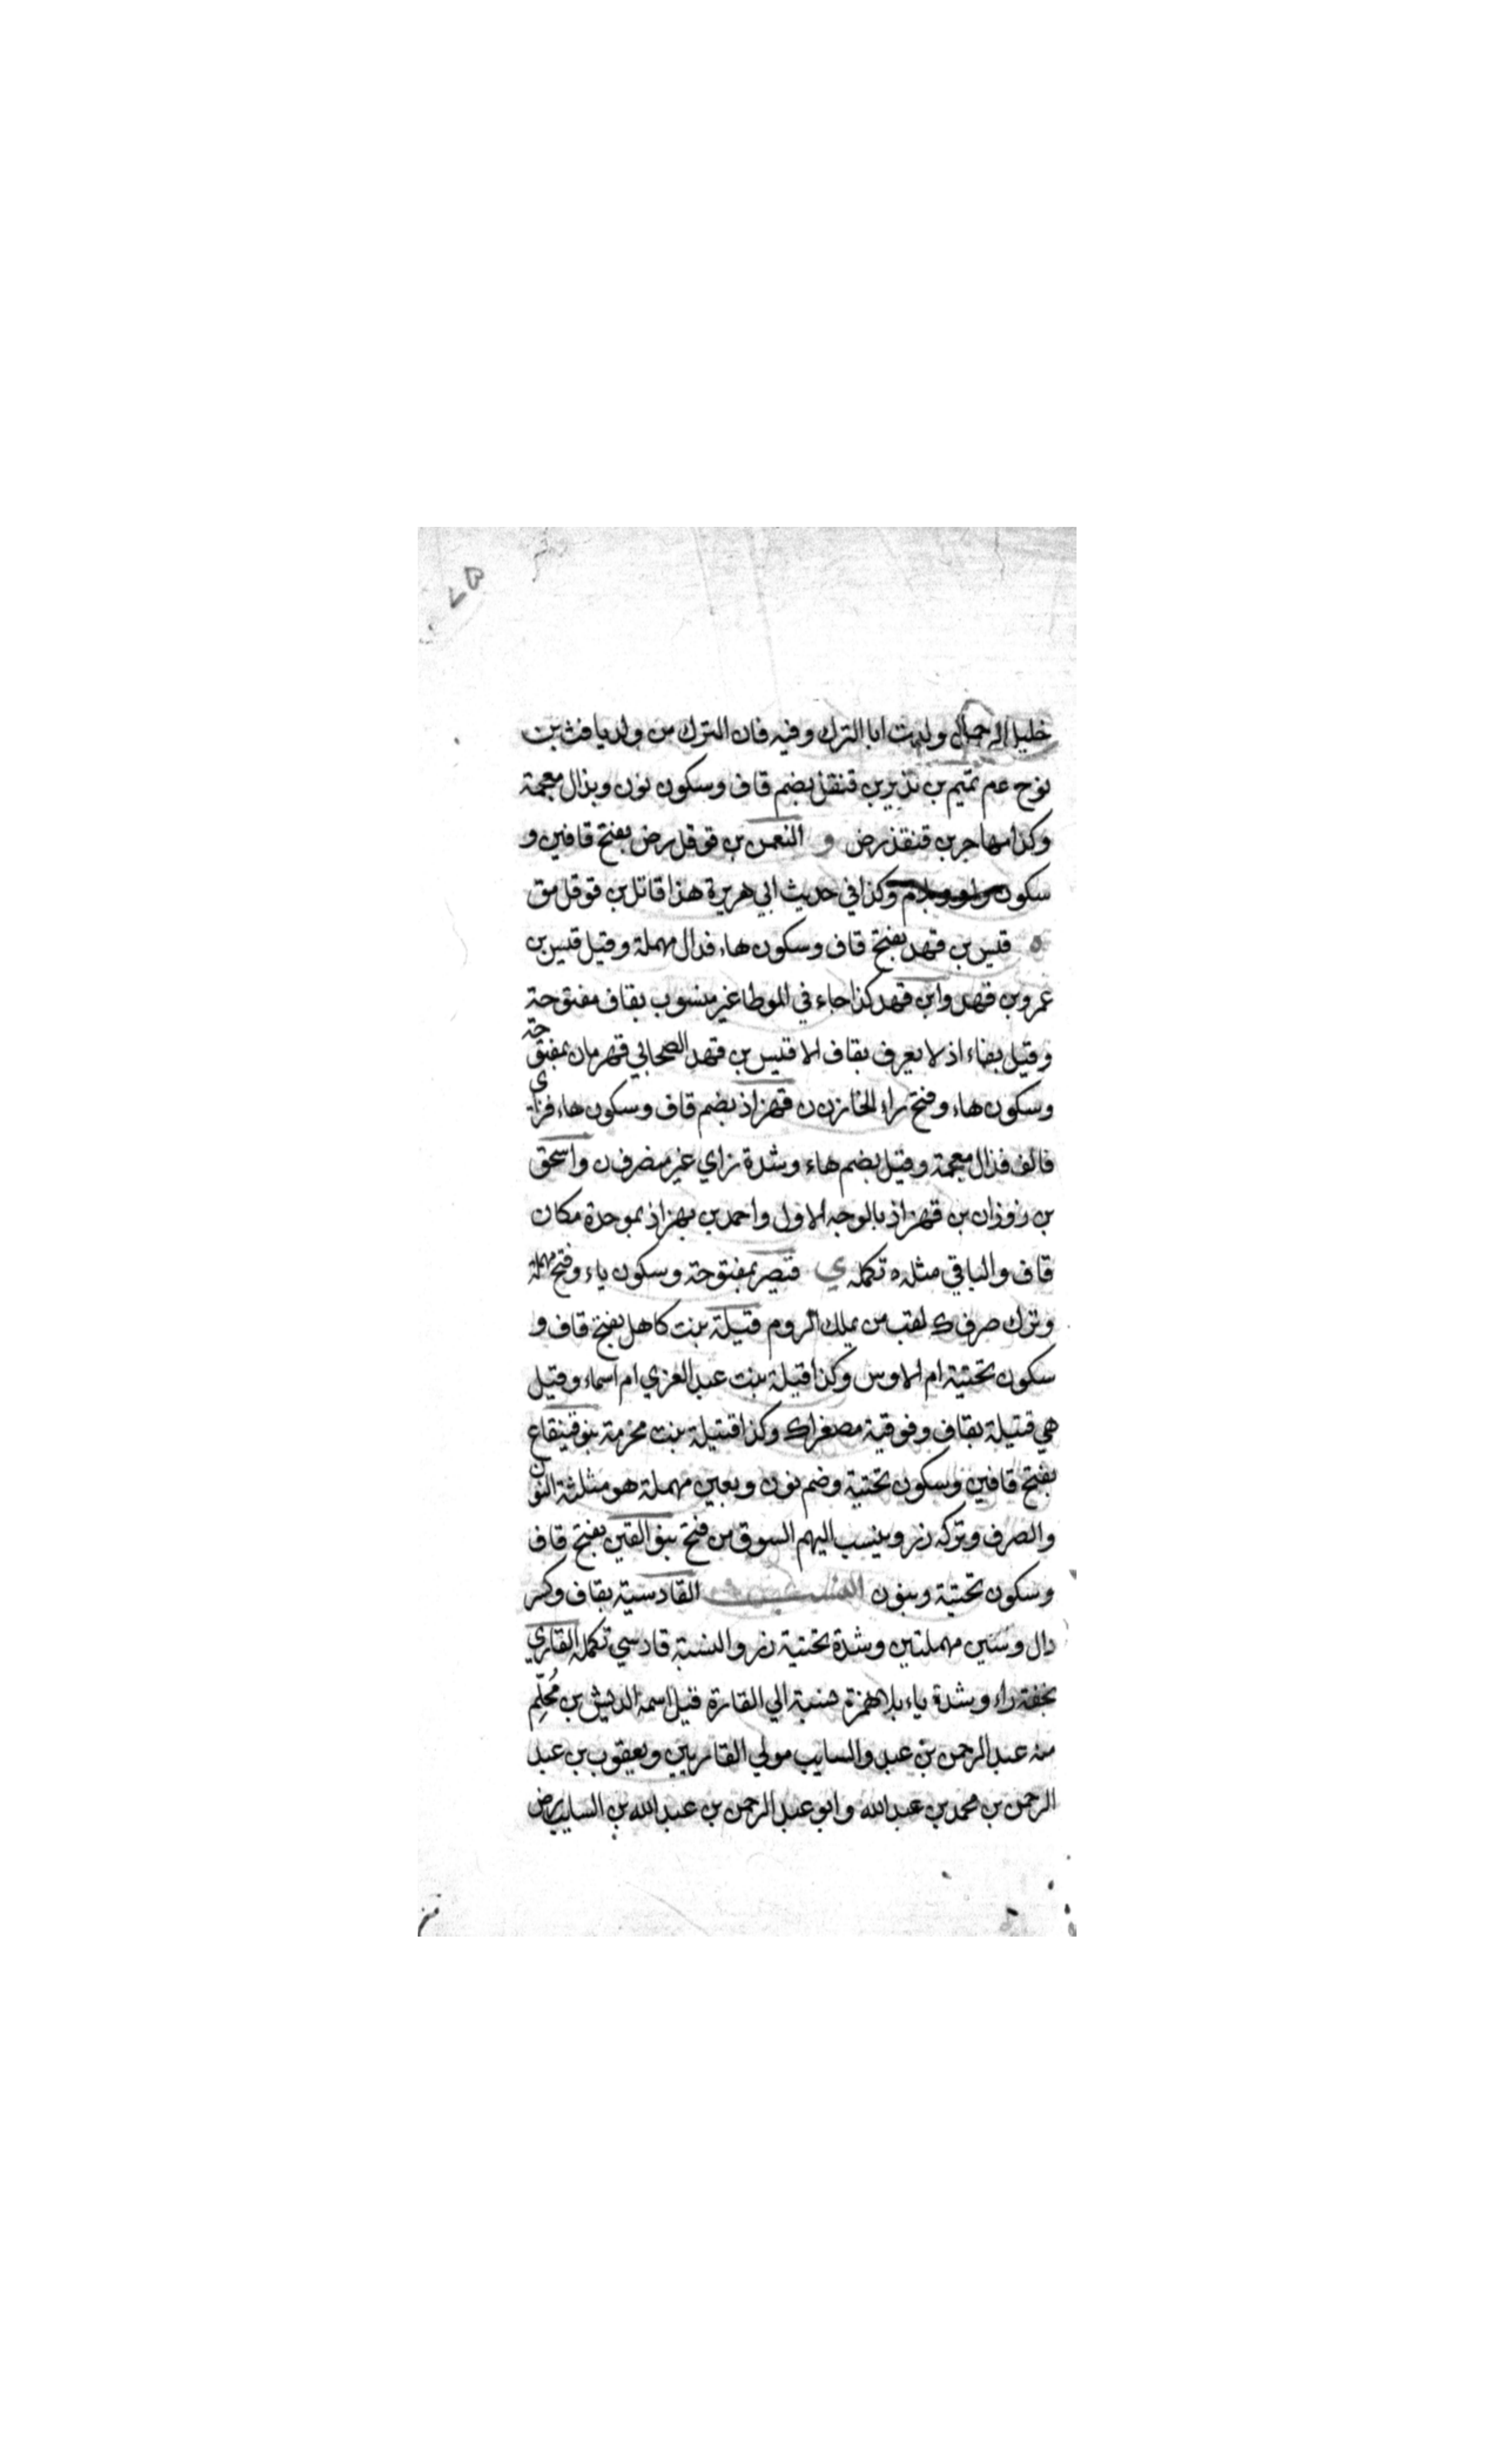 خليل الرحمن ولدت ابا الترك وفيه فان الترك من ولد يافث بن
نوح عم تميم بن نذير بن قنقذ بضم قاف وسكون نون وبذال معجمة
وكذا مهاجر بن قنقذ رض و النعمن بن قوقل رض بفتح قافين و
سكون واو وبلام وكذا في حديث ابي هريرة هذا قاتل بن قوقل مق
ه قيس بن قهد بفتح قاف وسكون هاء فدال مهملة وقيل قيس بن
عمرو بن قهد وابن قهد كذا جاء في الموطا غير منسوب بقاف مفتوحة
وقيل بفاء اذ لا يعرف بقاف الا قيس بن قهد الصحابي قهرمان بمفتوحة
وسكون هاء وفتح راء الخازن ن قهزاذ بضم قاف وسكون هاء فزاي
فالف فذال معجمة وقيل بضم هاء وشدة زاي غير منصرف ن واسحق
بن زوزان بن قهزاذ بالوجه الاول واحمد بن بهزاذ بموحدة مكان
قاف والباقي مثله ه تكمله ي قيصر بمفتوحة وسكون ياء وفتح مهملة
وترك صرف ك لقب من يملك الروم قيلة بنت كاهل بفتح قاف و
سكون تحتية ام الاوس وكذا قيلة بنت عبد العزي ام اسماء وقيل
هي قتيلة بقاف وفوقية مصغرا ك وكذا قتيلة بنت مخرمة بنو قينقاع
بفتح قافين وسكون تحتية وضم نون وبعين مهملة هو مثلثة النون
والصرف وتركه زر وينسب اليهم السوق من فتح بنو القين بفتح قاف
وسكون تحتية وبنون القادسية بقاف وكسر
دال وسين مهملتين وشدة تحتية زر والنسبة قادسي تكمله القاري
بخفة راء وشدة ياء بلا همزة منسبة الي القارة قيل اسمه الديش بن مُحلِّم
منه عبد الرحمن بن عبد والسايب مولي القاريين ويعقوب بن عبد
الرحمن بن محمد بن عبد الله وابو عبد الرحمن بن عبد الله بن السايب رض